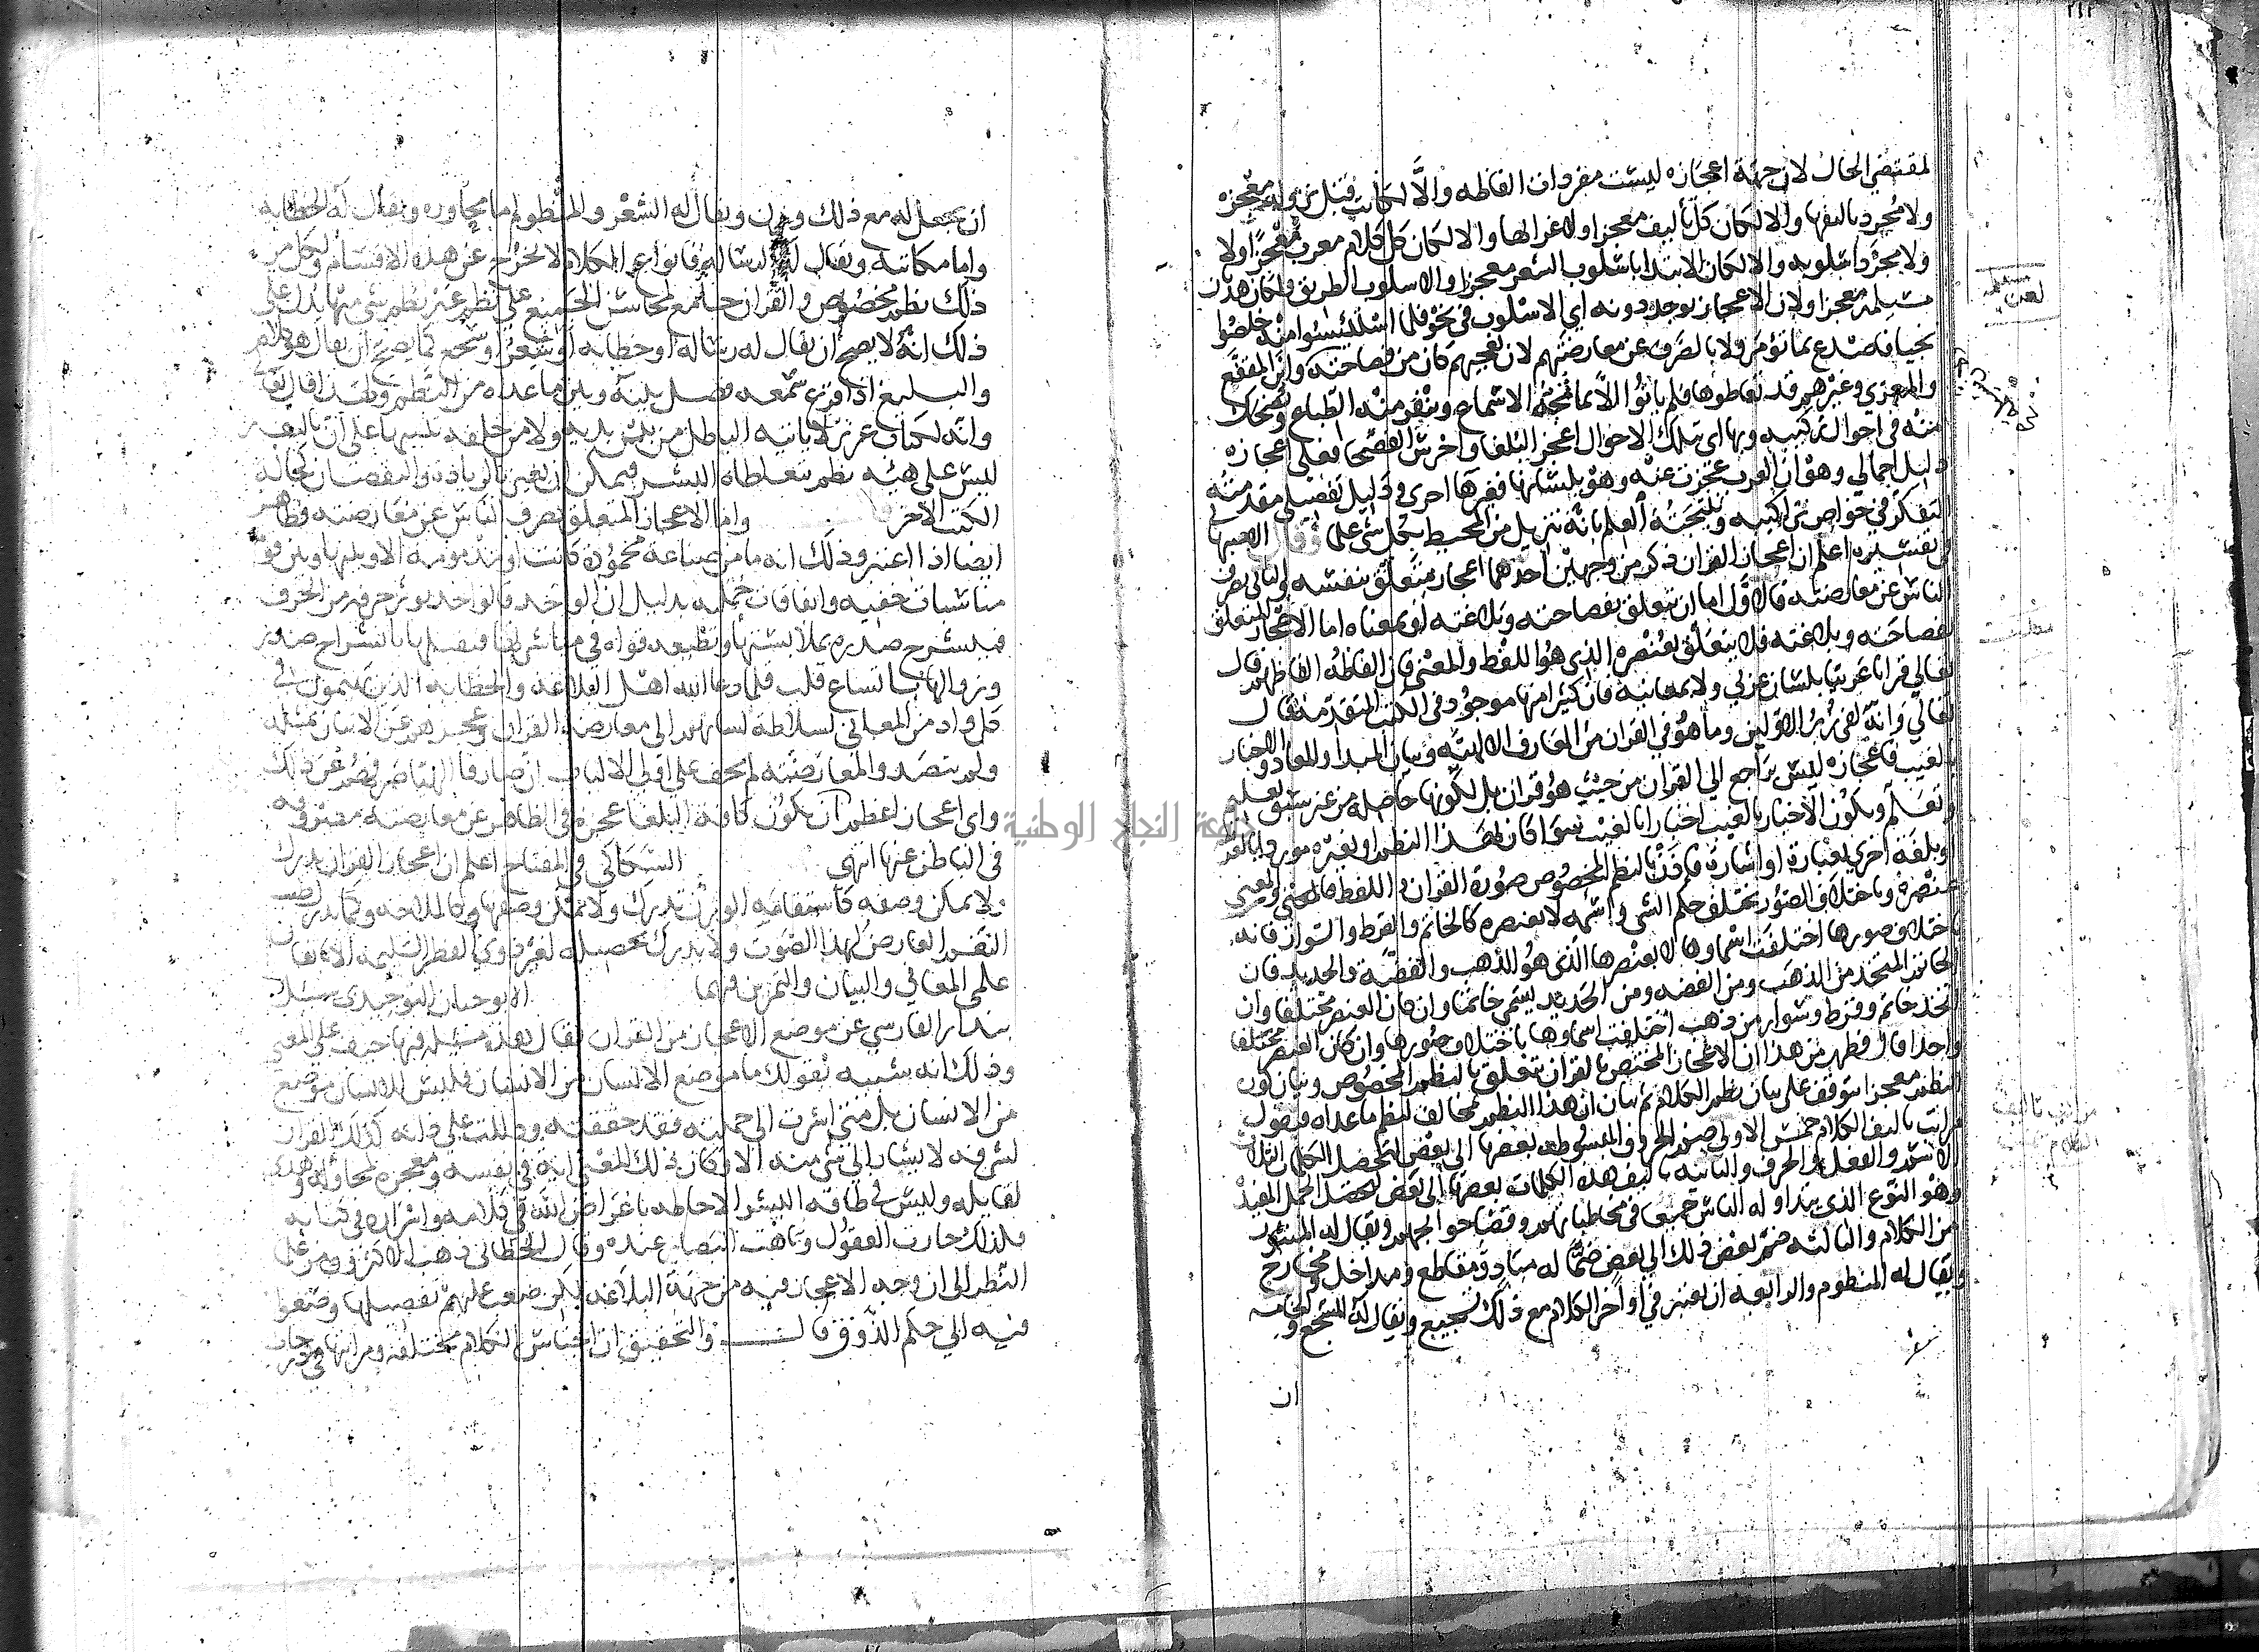 لمقتضي الحال لان جهة اعجازه ليست مفردات الفاظه والا لكانت قبل نزوله معجزه
ولا مجرد تاليفها والا لكان كل تاليف معجزا ولا اعرابها والا لكان كل كلام معرب معجزا ولا
ولا مجرد اسلوبه والا لكان الابتدا باسلوب الشعر معجزا والاسلوب الطريق ولكان هذيان
مسيلمة معجزا ولان الاعجاز يوجد دونه اي الاسلوب في نحو فلما استيئسوا منه خلصوا
نجيا فاصدع بما تؤمر ولا بالصرف عن معارضتهم لان تعجبهم كان من فصاحته ولان المقفع
والمعري وغيرهم قد تعاطوها فلم ياتوا الا بما تمجه الاسماع وينفر منه الطباع ويضحك
منه في احوال تركيبه وبها اي بتلك الاحوال اعجز البلغا واخرس الفصحا فعلى اعجازه
دليل اجمالي وهو ان العرب عجزت عنه وهو بلسانها فغيرها احرى ودليل تفصيلي مقدمته
التفكر في خواص تراكيبه ونتيجته العلم بانه تنزيل من المحيط بكل شي علما وقال الاصبهاني
في تفسيره اعلم ان اعجاز القران ذكر من وجهين احدهما اعجاز متعلق بنفسه والثاني بصرف
الناس عن معارضته فالاول اما ان يتعلق بفصاحته وبلاغته او بمعناه اما الاعجاز المتعلق
بفصاحته وبلاغته فلا يتعلق بعنصره الذي هو اللفظ والمعنى فان الفاظه الفاظهم قال
تعالي قرانا عربيا بلسان عربي ولا بمعانيه فان كثيرا منها موجود في الكتب المتقدمة قال
تعالي وانه لفي زبر الاولين وما هو في القران من المعارف الالهيه وبيان المبدا والمعاد والاخبار
بالغيب فاعجازه ليس براجع الي القران من حيث هو قران بل لكونها حاصله من غير سبق تعليم
وتعلم ويكون الاخبار بالغيب اخبارا بالغيب سوا كان بهذا النظم او بغيره موردا بالعربية
وبلغة اخري بعبارة او اشارة فاذن النظم المخصوص صورة القران واللفظ والمعنى
عنصره وباختلاف الصور يختلف حكم الشي واسمه لا بعنصره كالخاتم والقرط والسوار فانه
باختلاف صورها اختلفت اسماوها لا بعنصرها الذي هو الذهب والفضة والحديد فان
الخاتم المتخذ من الذهب ومن الفضه ومن الحديد يسمي خاتما وان كان العنصر مختلفا وان
اتخذ خاتم وقرط وسوار من ذهب اختلفت اسماوها باختلاف صورها وان كان العنصر
واحدا قال فظهر من هذا ان الاعجاز المختص بالقران يتعلق بالنظم المخصوص وبيان كون
النظم معجزا يتوقف على بيان نظم الكلام ثم بيان ان هذا النظم مخالف لنظم ما عداه فنقول
مراتب تاليف الكلام خمس الاولى ضم الحروف المبسوطه بعضها الى بعض لتحصل الكلمات الثلاث
الاسم والفعل والحرف والثانيه تاليف هذه الكلمات بعضها الى بعض لتحصل الجمل المفيدة
وهو النوع الذي يتداوله الناس جميعا في مخاطباتهم وقضا حوائجهم ويقال له المنثور
من الكلام والثالثه ضم بعض ذلك الى بعض ضما له مباد ومقاطع ومداخل ومخارج
ويقال له المنظوم والرابعه ان يعتبر في اواخر الكلام مع ذلك تسجيع ويقال له المسجع والخامسه
ان
مراتب تاليف
الكلام خمسه
ان يجعل له مع ذلك وزن ويقال له الشعر والمنظوم اما محاوره ويقال له الخطابه
واما مكاتبه ويقال له الرساله فانواع الكلام لا تخرج عن هذه الاقسام ولكل من
ذلك نظم مخصوص والقران جامع لمحاسن الجميع على نظم غير نظم شي منها يدل على
ذلك انه لا يصح ان يقال له رسالة او خطابه او شعر او سجع كما يصح ان يقال هو كلام
والبليغ اذا قرع سمعه فصل بينه وبين ما عداه من النظم ولهذا قال تعالى
وانه لكتاب عزيز لا ياتيه الباطل من بين يديه ولا من خلفه تنبيها على ان تاليفه
ليس على هيئه نظم يتعاطاه البشر فيمكن ان يغير بالزيادة والنقصان كحالة
الكتب الاخر واما الاعجاز المتعلق بصرف الناس عن معارضته فظاهر
ايضا اذا اعتبر وذلك انه ما من صناعة محمودة كانت او مذمومة الا وبينها وبين قوم
مناسبات خفيه واتفاقات جمليه بدليل ان الواحد فالواحد يوثر حرفه من الحرف
فينشرح صدره بملابستها وتطيعه قواه في مباشرتها فيقبلها بانشراح صدر
ويزاولها باتساع قلب فلما دعا الله اهل البلاغه والخطابه الذين يهيمون في
كل واد من المعاني بسلاطة لسانهم الى معارضة القران وعجزهم عن الاتيان بمثله
ولم يتصدوا لمعارضته لم يخف على اولي الالباب ان صارفا الهيا صرفهم عن ذلك
واي اعجاز اعظم من ان يكون كافة البلغا عجزة في الظاهر عن معارضته مصروفه
في الباطن عنها انتهى السكاكي في المفتاح اعلم ان اعجاز القران يدرك
ولا يمكن وصفه كاستقامه الوزن تدرك ولا يمكن وصفها وكالملاحه وكما يدرك طيب
النغم العارض لهذا الصوت ولا يدرك تحصيله لغير ذوي الفطر السليمه الا باتقان
علمي المعاني والبيان والتمرين فيهما ابو حيان التوحيدي سيل
بندار الفارسي عن موضع الاعجاز من القران فقال هذه مسئله فيها حيف على المعنى
وذلك انه شبيه بقولك ما موضع الانسان من الانسان فليس للانسان موضع
من الانسان بل متى اشرت الى جملته فقد حققته ودللت على ذاته كذلك القران
لشرفه لا يشار الى شي منه الا وكان ذلك المعنى اية في نفسه ومعجزه لمحاوله وهدى
لقايله وليس في طاقه البشر الاحاطه باغراض الله في كلامه واسراره في كتابه
فلذلك حارت العقول وتاهت البصاير عنده وقال الخطابي ذهب الاكثرون من علما
النظر الى ان وجه الاعجاز فيه من جهة البلاغه لكن صعب عليهم تفصيلها وصغوا
فيه الى حكم الذوق قال والتحقيق ان اجناس الكلام مختلفه ومراتبها في درجات
جامعة النجاح الوطنية